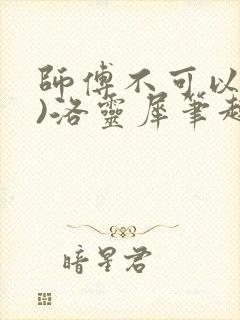 師傅不可以
)洛靈犀筆趣
暗星君